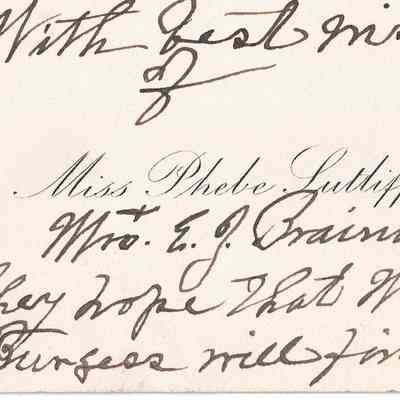 With best wis
of
Miss Phebe Lutliff
Mrs. E. J. Brain
hey hope that W
Burgess will fin